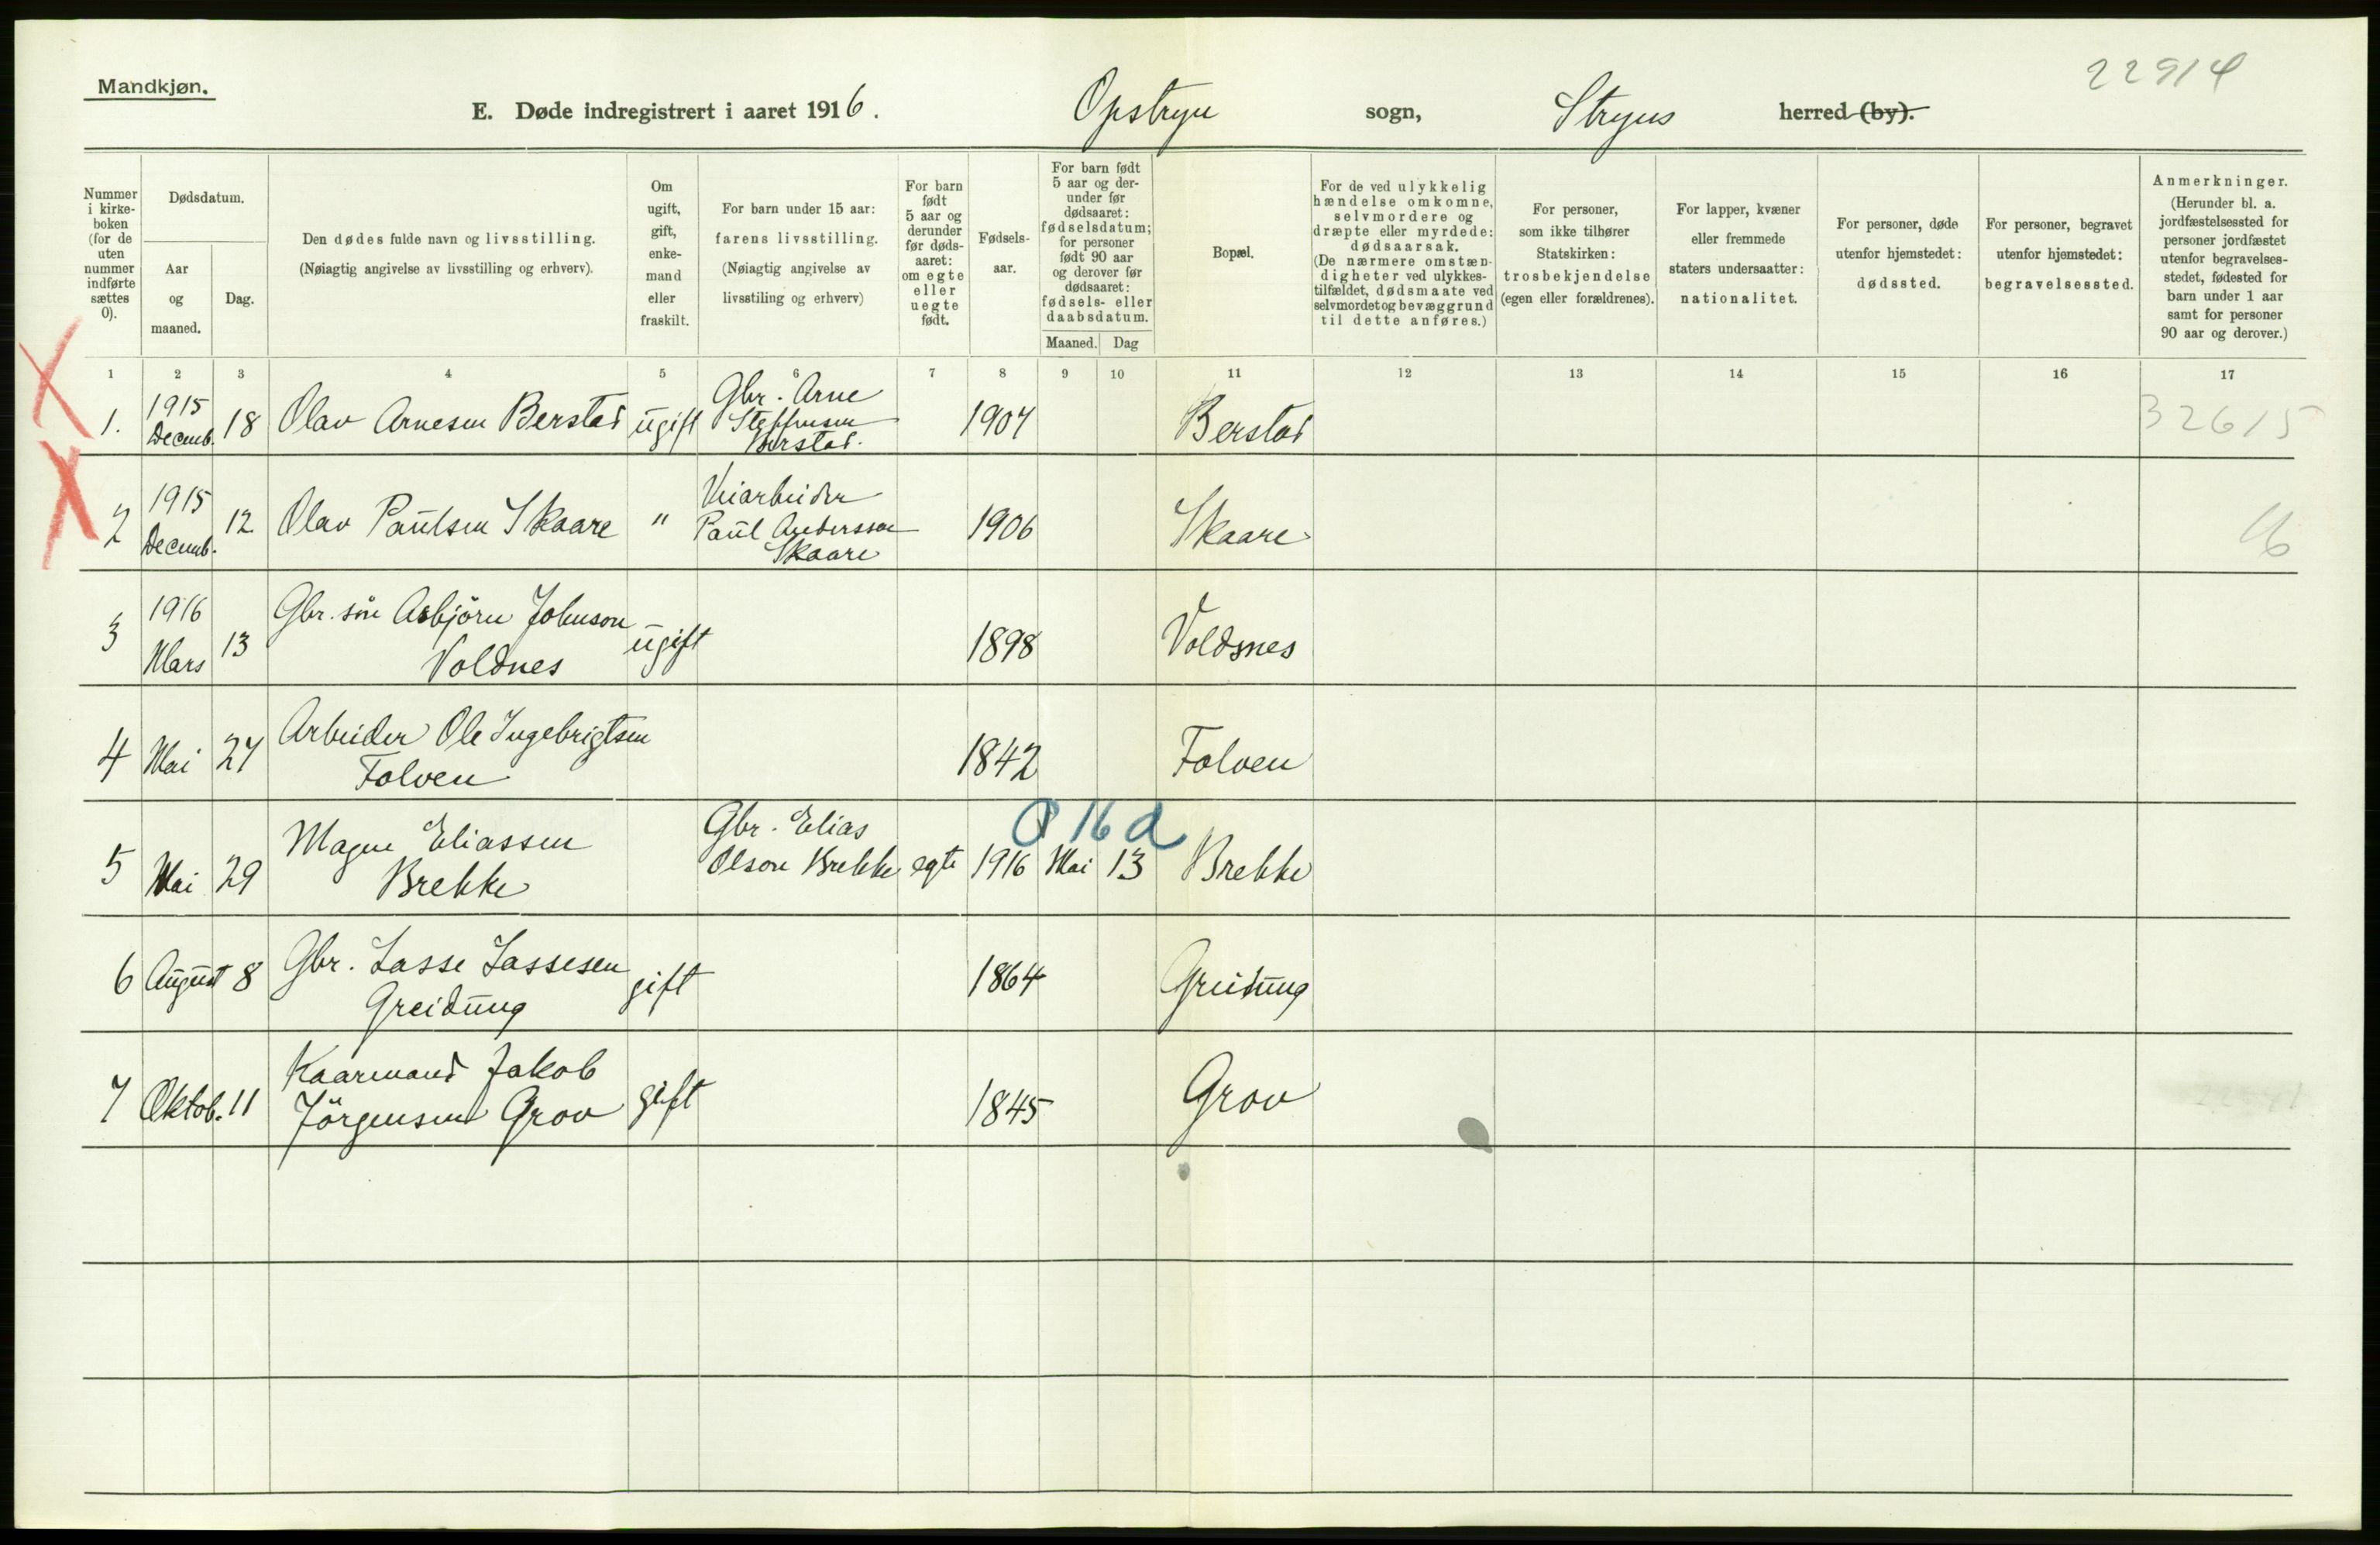 Mandkjøn.
22914
E. Døde indregistrert i aaret 1916. Opstryn sogn, Stryns herred (by).
Nummer i kirke- boken (for de uten nummer indførte sættes 0).
Dødsdatum.
Aar og maaned.
Dag.
Den dødes fulde navn og livsstilling.
(Nøiagtig angivelse av livsstilling og erhverv).
Om ugift, gift, enke- mand eller fraskilt.
For barn under 15 aar: farens livsstilling.
(Nøiagtig angivelse av livsstiling og erhverv)
For barn født 5 aar og derunder før døds- aaret: om egte eller uegte født.
Fødsels- aar.
For barn født 5 aar og der- under før dødsaaret: fødselsdatum; for personer født 90 aar og derover før dødsaaret: fødsels- eller daabsdatum.
Maaned. Dag
Bopæl.
For de ved ulykkelig hændelse omkomne, selvmordere og dræpte eller myrdede: dødsaarsak. (De nærmere omstæn- digheter ved ulykkes- tilfældet, dødsmaate ved selvmordet og bevæggrund til dette anføres.)
For personer, som ikke tilhører Statskirken: trosbekjendelse (egen eller forældrenes).
For lapper, kvæner eller fremmede staters undersaatter: nationalitet.
For personer, døde utenfor hjemstedet: dødssted.
For personer, begravet utenfor hjemstedet: begravelsessted.
Anmerkninger.
(Herunder bl. a. jordfæstelsessted for personer jordfæstet utenfor begravelses- stedet, fødested for barn under 1 aar samt for personer 90 aar og derover.)
1 2 3 4 5 6 7 8 9 10 11 12 13 14 15 16 17
X 1. 1915 Decemb. 18 Olav Arnesen Berstad ugift Gbr. Arne Steffensen Berstad. 1907 Berstad 32615
X 2 1915 Decemb. 12 Olav Paulsen Skaare " Veiarbeider Paul Anderssen Skaare 1906 Skaare 16
3 1916 Mars 13 Gbr. sön Asbjörn Johnson Voldnes ugift 1898 Voldsnes
4 Mai 27 Arbeider Ole Ingebrigtsen Folven 1842 Folven
5 Mai 29 Magne Eliassen Brekke Gbr. Elias Olson Brekke egte 1916 Mai 13 Brekke
16 d
6 August 8 Gbr. Lasse Lassesen Greidung gift 1864 Greidung
7 Oktob. 11 Kaarmand Jakob Jörgensen Grov gift 1845 Grov